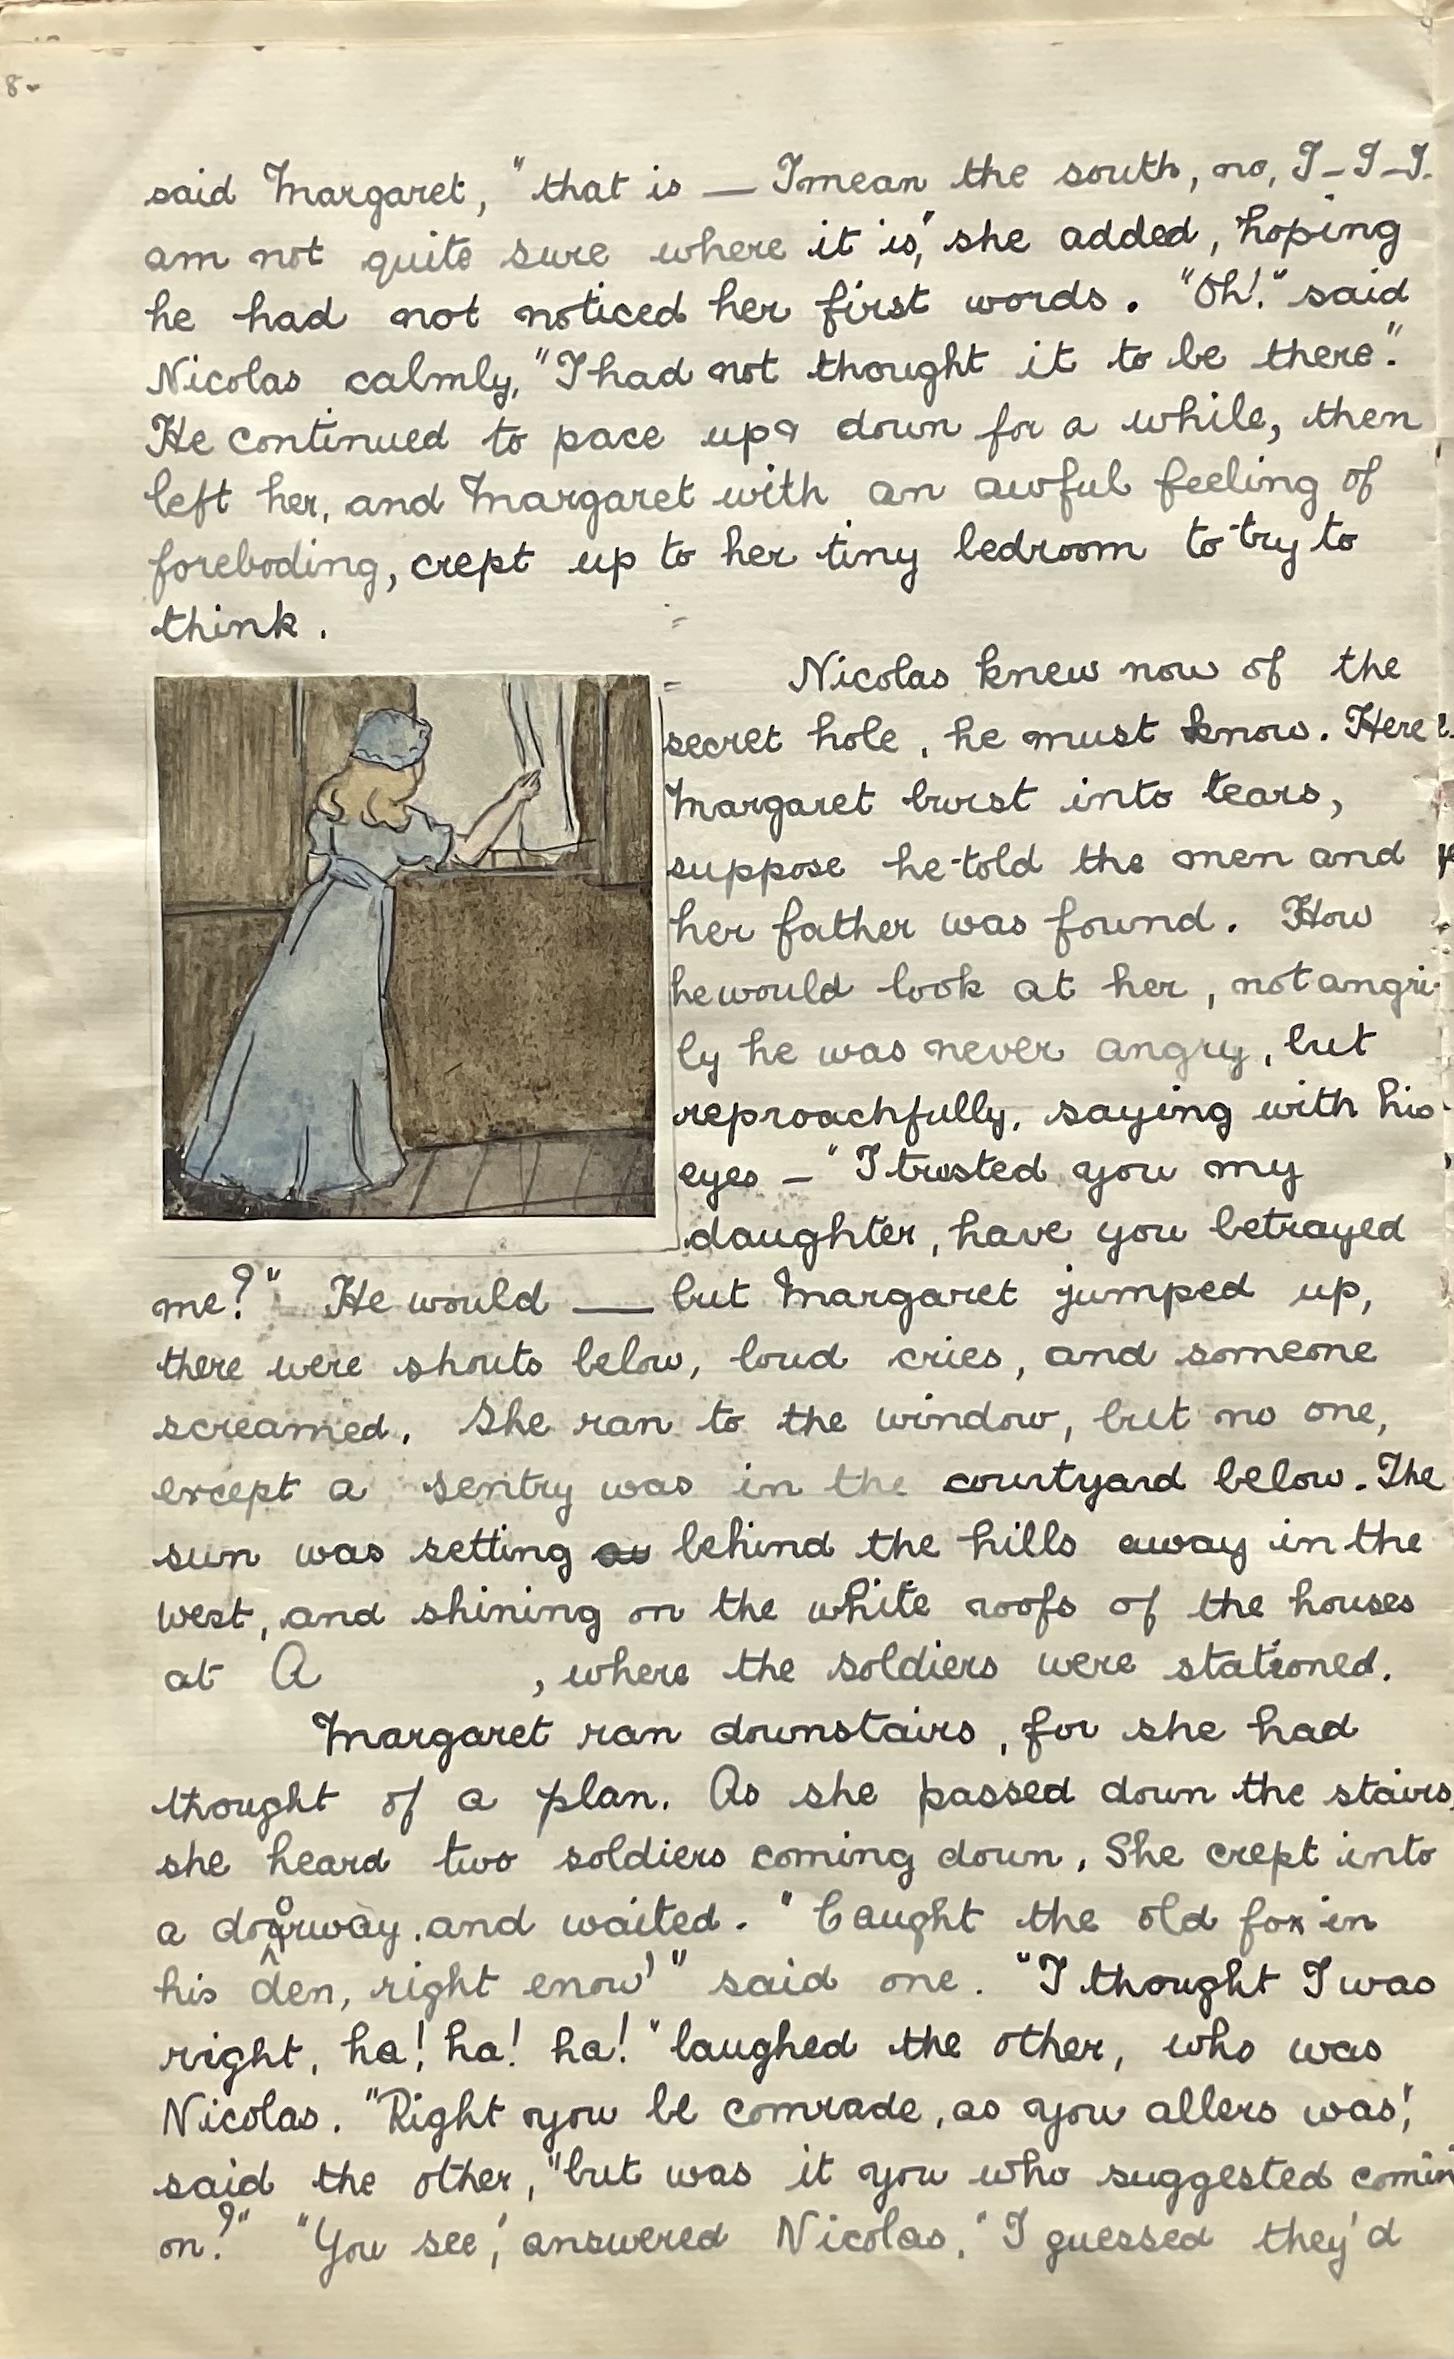 8.
said Margaret, "that is — I mean the south, no, I-I-I.
am not quite sure where it is," she added, hoping
he had not noticed her first words. "Oh!" said
Nicolas calmly, "I had not thought it to be there".
He continued to pace up & down for a while, then
left her, and Margaret with an awful feeling of
foreboding, crept up to her tiny bedroom to try to
think.
Nicolas knew now of the
secret hole, he must know. Here
Margaret burst into tears,
suppose he told the men and
her father was found. How
he would look at her, not angri-
ly he was never angry, but
reproachfully, saying with his
eyes — "I trusted you my
daughter, have you betrayed
me?" He would — but Margaret jumped up,
there were shouts below, loud cries, and someone
screamed. She ran to the window, but no one,
except a sentry was in the courtyard below. The
sun was setting behind the hills away in the
west, and shining on the white roofs of the houses
at A , where the soldiers were stationed.
Margaret ran downstairs, for she had
thought of a plan. As she passed down the stairs,
she heard two soldiers coming down. She crept into
a doorway, and waited. "Caught the old fox in
his den, right enow!" said one. "I thought I was
right, ha! ha! ha!" laughed the other, who was
Nicolas. "Right you be comrade, as you allers was",
said the other, "but was it you who suggested comin
on?" "You see," answered Nicolas, "I guessed they'd